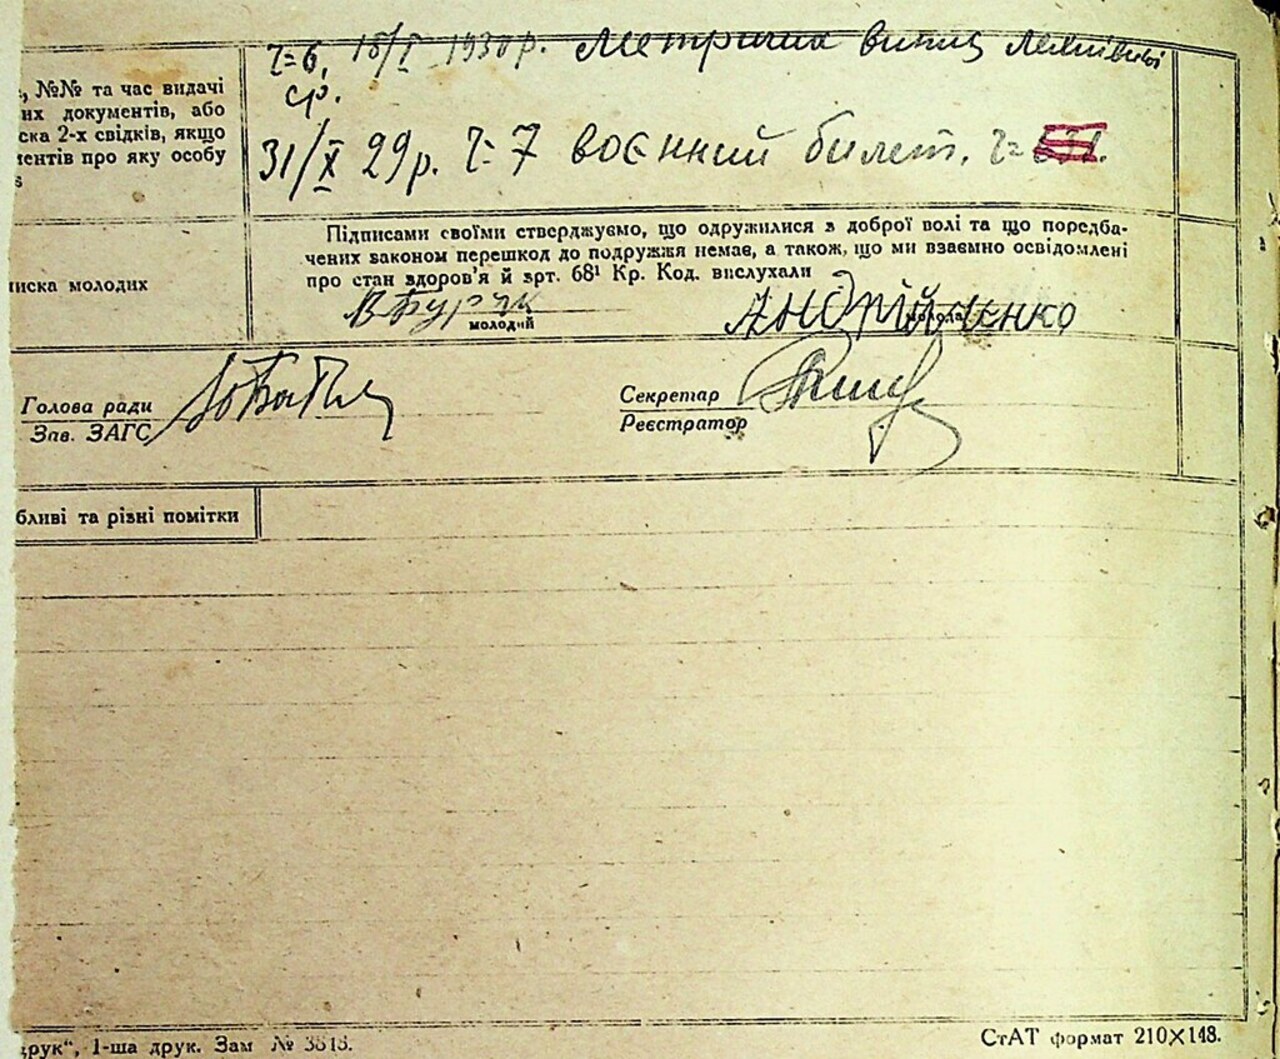 ч=6, 18/I 1930 р. Метрична випис
ср.
, №№ та час видачі
их документів, або
ска 2-х свідків, якщо
ментів про яку особу
в
31/X 29 р. ч=7 воєнний билет. ч=
Підписами своїми стверджуємо, що одружилися з доброї волі та що поредба-
чених законом перешкод до подружжя немає, а також, що ми взаємно освідомлені
про стан здоров'я й зрт. 68¹ Кр. Код. вислухали
иска молодих
В Бурчк
молодий
Андрійченко
молода
Голова ради
Зав. ЗАГС
Секретар
Реєстратор
бливі та різні помітки
друк“, 1-ша друк. Зам № 3518.
СтАТ формат 210×148.